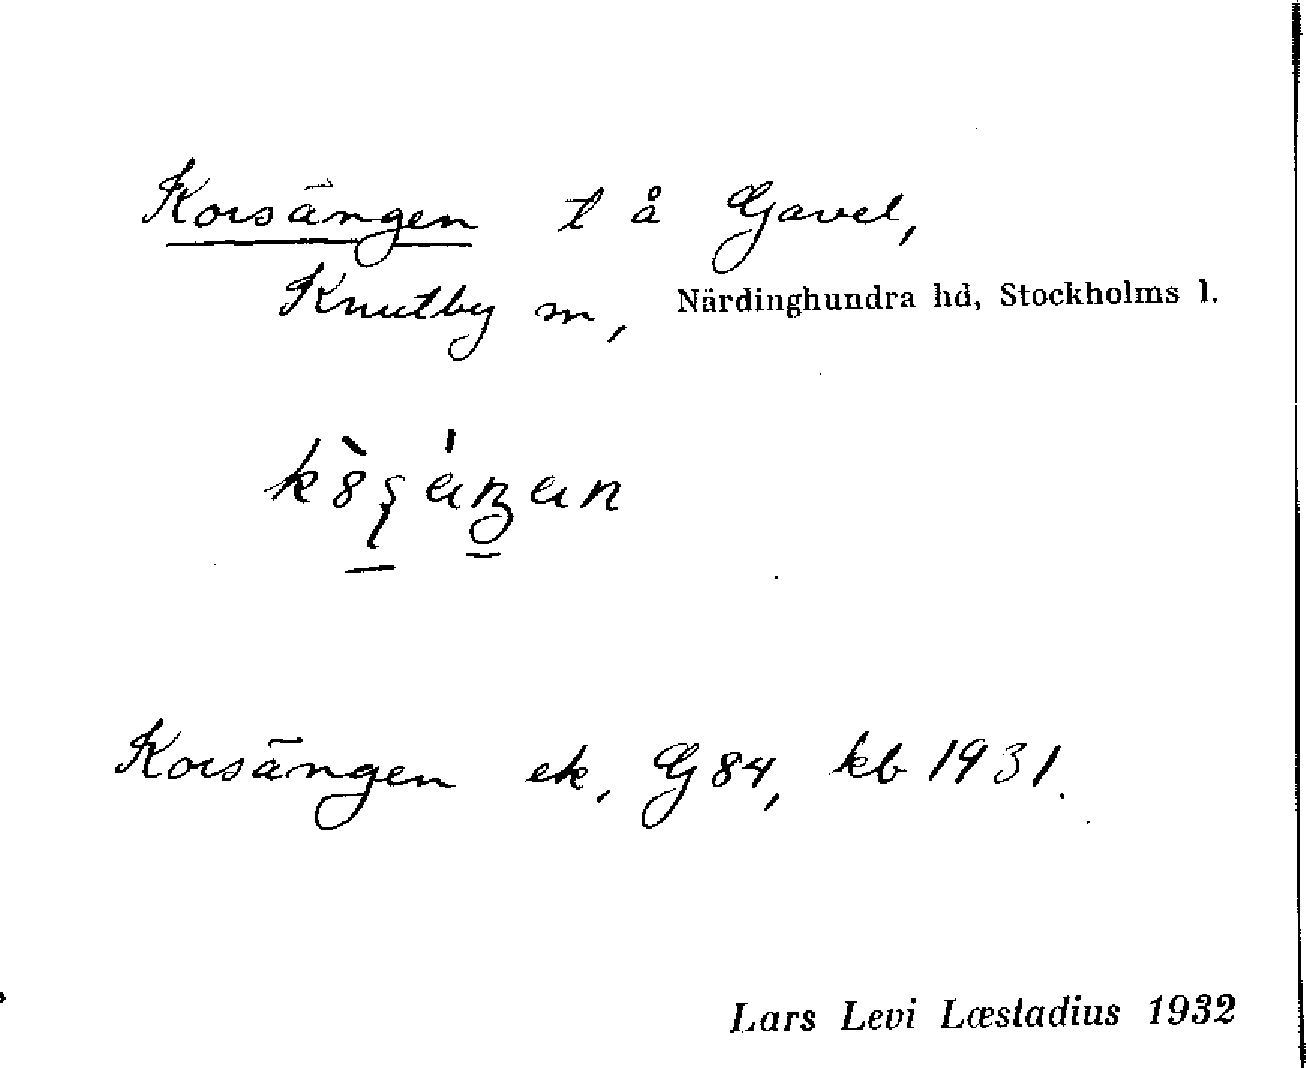 Korsängen t å Gavel,
Knutby sn, Närdinghundra hd, Stockholms l.
Korsängen ek, G 84, kb 1931.
Lars Levi Læstadius 1932